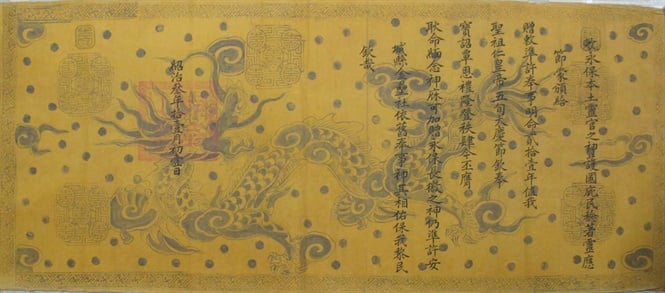 敕永保本土靈官之神護國庇民稔著靈應
節蒙頒給
贈敕準許奉事明命貳拾壹年值我
聖祖仁皇帝五旬大慶節欽奉
寶詔覃恩禮隆登秩肆今丕膺
耿命緬念神庥可加贈永保之神仍準許安
城縣聖社依舊奉事神其相佑保我黎民
欽哉
紹治叁年拾壹月初壹日